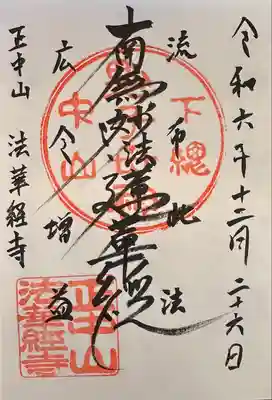 令和六年十二月二十六日
流布此法
南無妙法蓮華経
広令増益
正中山 法華経寺
下總
中山
正中山
法華経寺